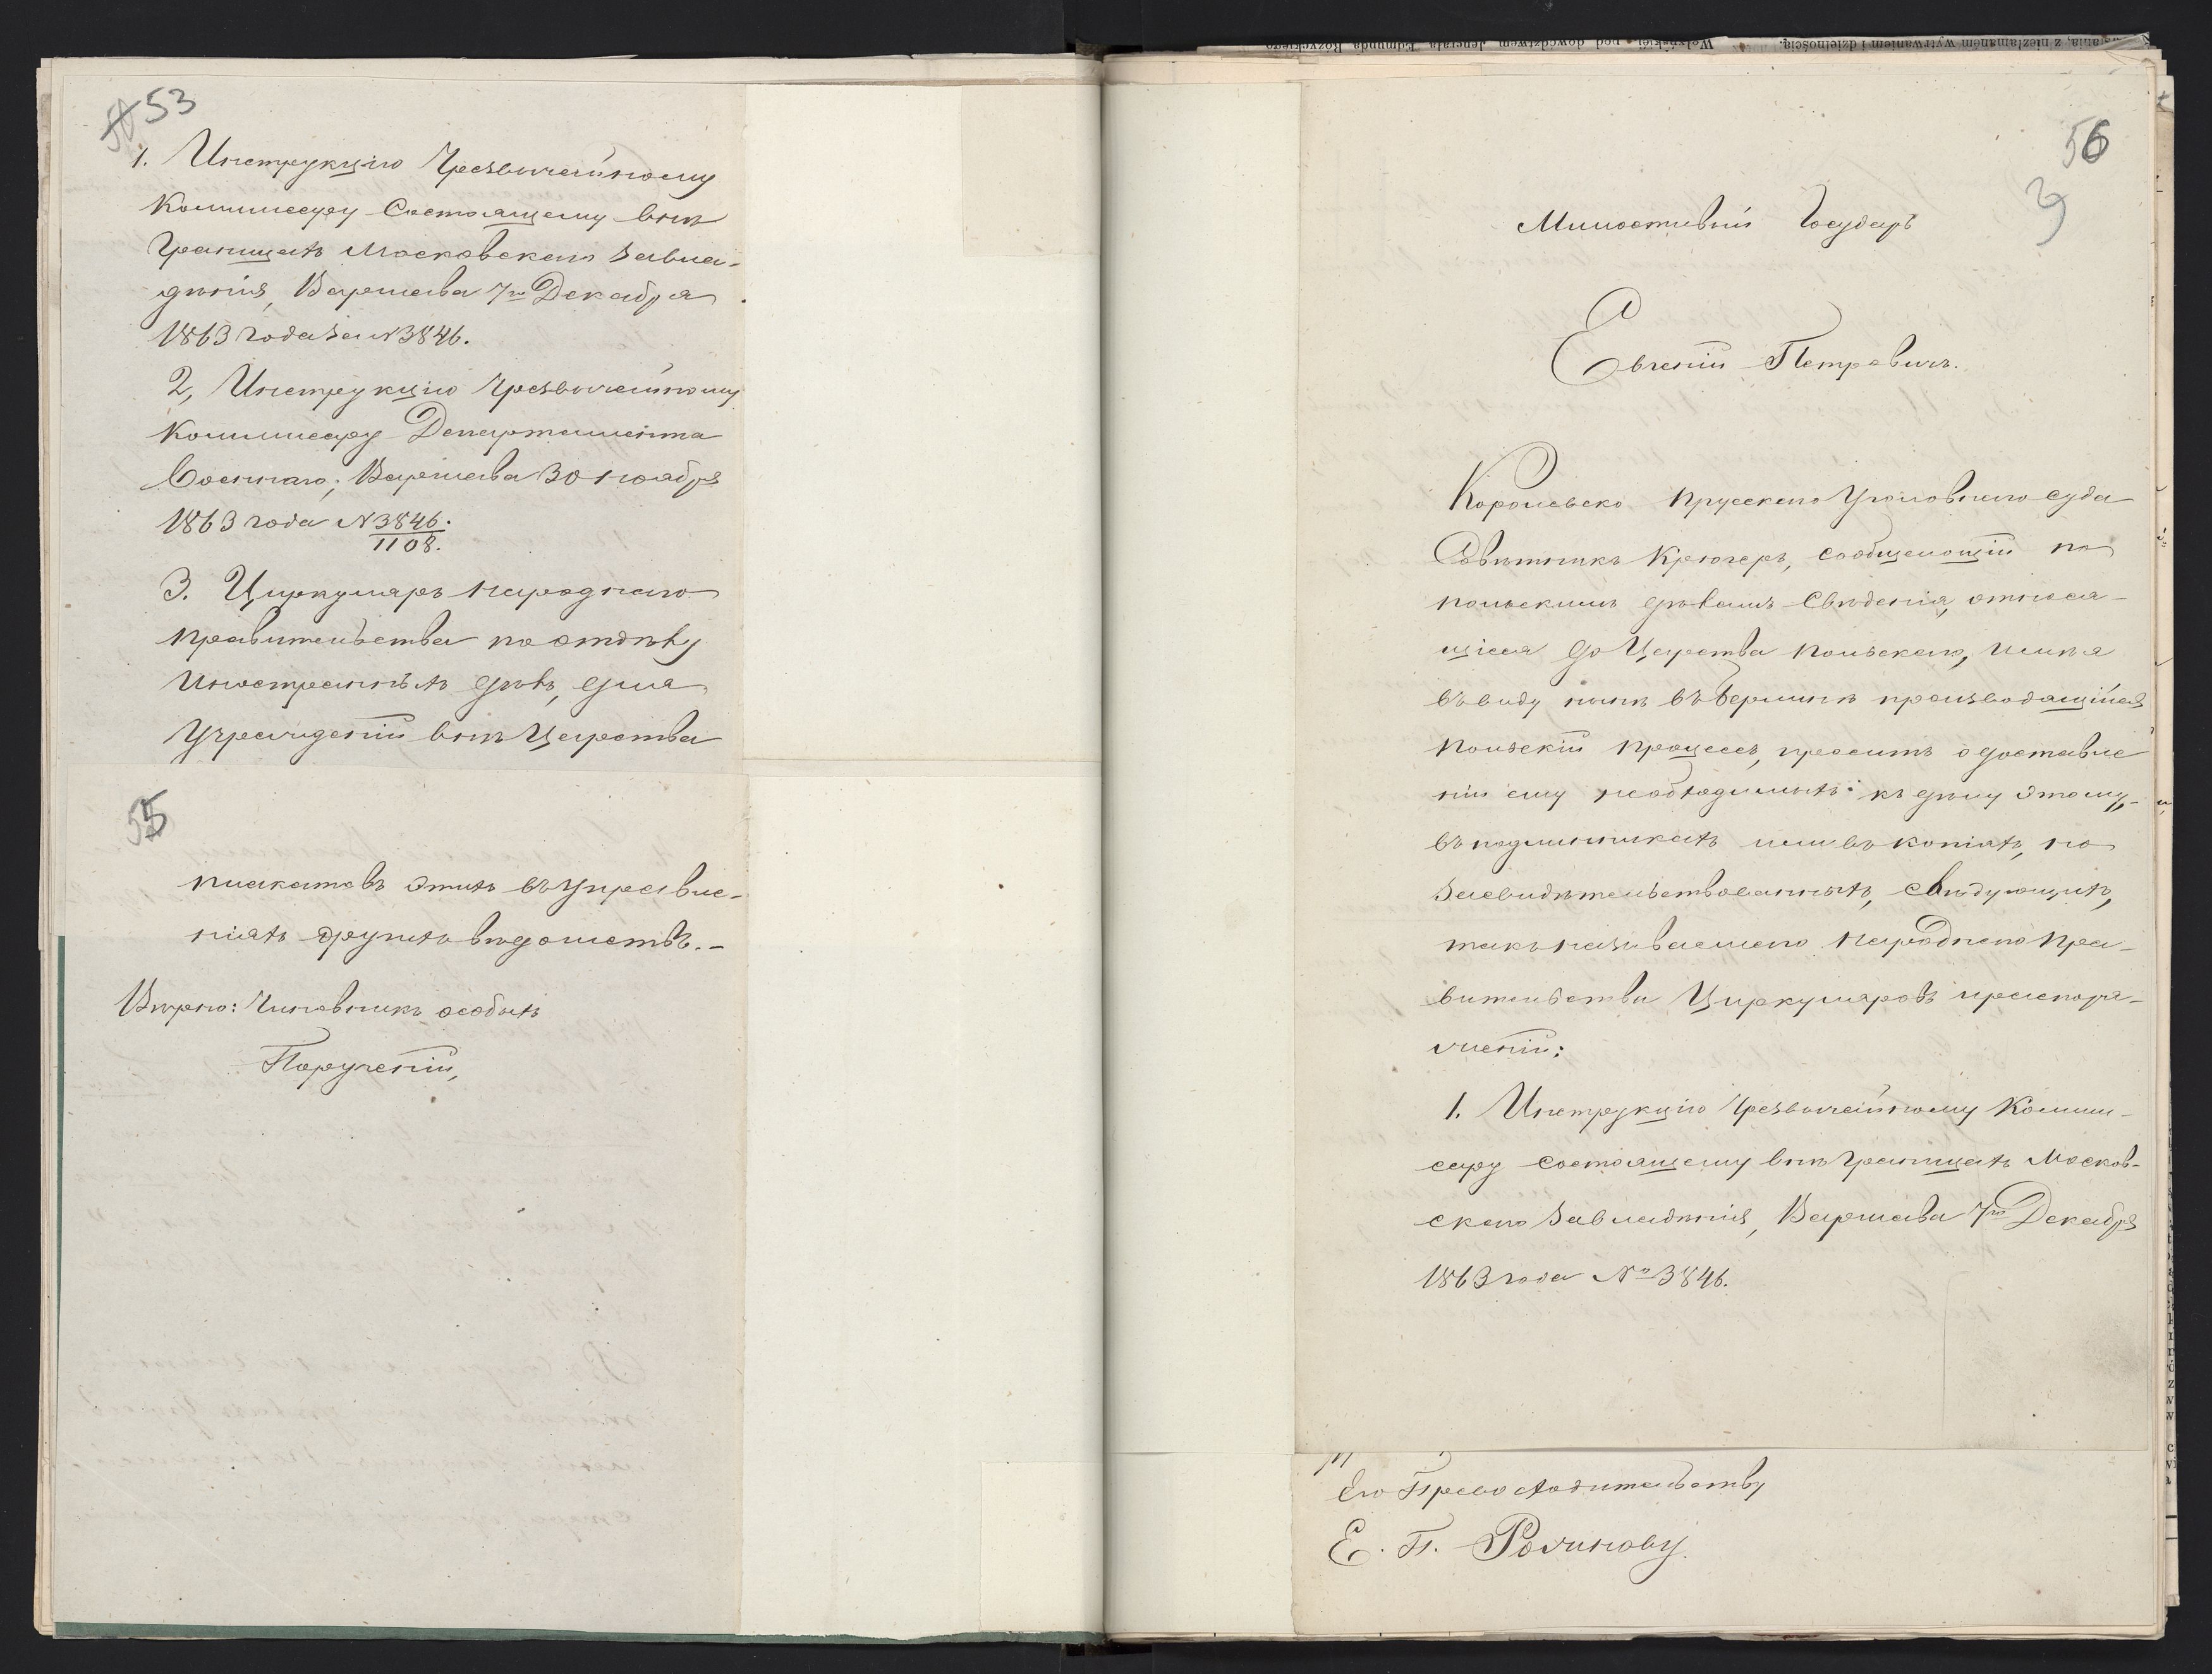 53
1. Инструкцію Чрезвычайному
Коммиссару Состоящему внѣ
Границахъ Московскаго завла-
дѣнія, Варшава 7го Декабря
1863 года за N 3846.
2, Инструкцію Чрезвычайному
Коммисару Департамента
Военнаго; Варшава 30 ноября
1863 года N 3846.
1108.
3. Циркуляръ народнаго
правительства по отдѣлу
Иностранныхъ дѣлъ, для
Учрежденій внѣ Царства
55
плакатовъ этихъ въ Управле-
ніяхъ другихъ вѣдомствъ.-
Вѣрно: Чиновникъ особыхъ
Порученій,
56
Милостивый Государь
Евгеній Петровичъ.
Королевско Прусскаго Уголовнаго суда
Совѣтникъ Крюгеръ, сообщающій по
польскимъ дѣламъ Свѣденія, относя-
щіеся до Царства Польскаго, имѣя
въ виду нынѣ въ Берлинѣ производящійся
польскій процессъ, проситъ о доставле
ніи ему необходимыхъ къ дѣлу этому,-
въ подлинникахъ или въ копіяхъ, но
засвидѣтельствованныхъ, слѣдующихъ,
такъ называемаго народнаго пра-
вительства Циркуляровъ и распоря-
женій:
1. Инструкцію Чрезвычайному Комми-
сару состоящему внѣ Границахъ Москов-
скаго Завладѣнія, Варшава 7го Декабря
1863 года № 3846.
Его Превосходительству
Е. П. Рожнову.